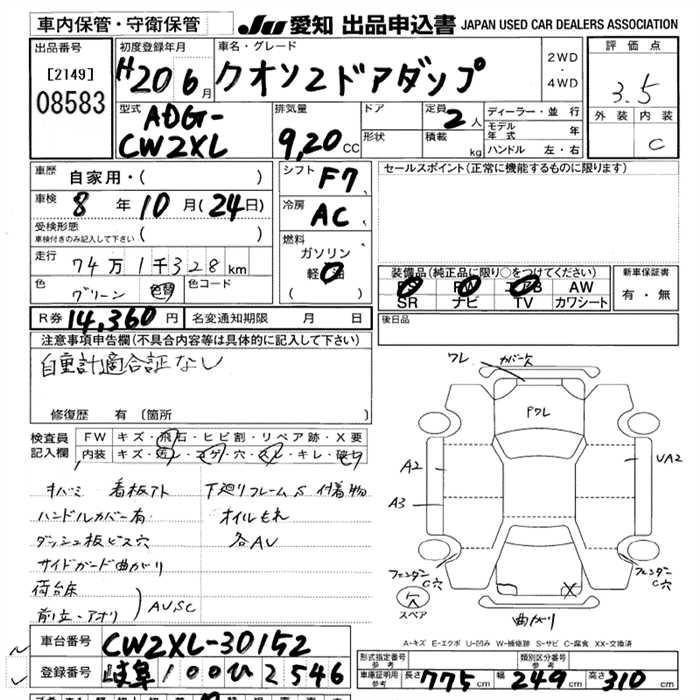 車内保管・守衛保管
JU 愛知 出品申込書 JAPAN USED CAR DEALERS ASSOCIATION
出品番号
[2149]
08583
初度登録年月
H20 6月
車名・グレード
クオン2ドアダンプ
2WD
・
4WD
評価点
3.5
外装 内装
C
型式
ADG-
CW2XL
排気量
9,20 CC
ドア
形状
定員 2人
積載 kg
ディーラー・並行
モデル年式 年
ハンドル 左・右
車歴
自家用・( )
車検 8年 10月(24日)
受検形態
車検付きのみ記入して下さい ( )
走行
74万1千328km
色
グリーン 色替 色コード
シフト
F7
冷房
AC
燃料
ガソリン
軽油
( )
セールスポイント(正常に機能するものに限ります)
装備品(純正品に限り○をつけてください)
PS PW エアB AW
SR ナビ TV カワシート
新車保証書
有・無
R券 14,360円 名変通知期限 月 日
後日品
注意事項申告欄(不具合内容等は具体的に記入して下さい)
自重計適合証なし
修復歴 有(箇所
検査員
記入欄
FW キズ・飛石・ヒビ割・リペア跡・X要
内装 キズ・汚レ・コゲ・穴・スレ・キレ・破セリ
キバミ 看板アト 下廻りフレームS 付着物
ハンドルカバー有 オイルモレ
ダッシュ板ビス穴 各AU
サイドガード曲がり
荷台床
前立・アオリ AUSC
ワレ カバー欠
Pワレ
A2
UA2
A3
フェンダーC穴
フェンダーC穴
欠
スペア
X
曲がり
A-キズ E-エクボ U-凹み W-補修跡 S-サビ C-腐食 XX-交換済
車台番号 CW2XL-30152
登録番号 岐阜100ひ2546
形式指定番号
参考
類別区分番号
参考
車庫証明用
参考
長さ 775cm 幅 249cm 高さ 310cm